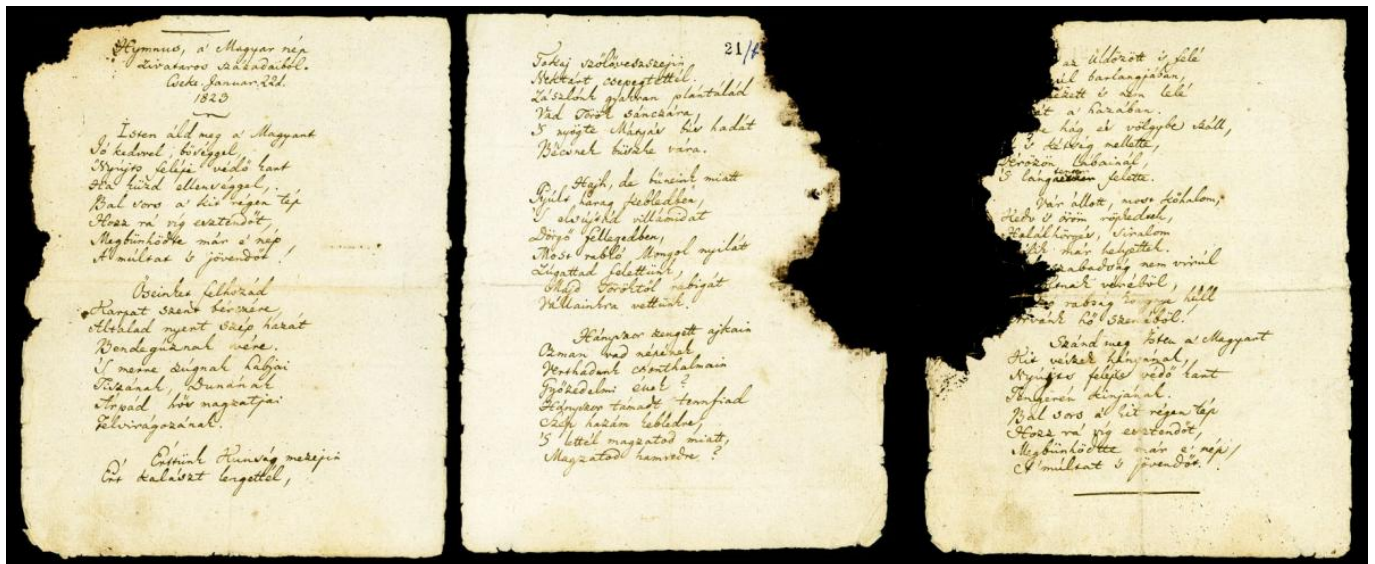 Hymnus, a' Magyar nép
zivataros századaiból.
Cseke. Januar. 22d.
1823
Isten áld meg a' Magyart
Jó kedvvel, bőséggel,
Nyújts feléje védő kart
Ha küzd ellenséggel,
Bal sors a' kit régen tép
Hozz rá víg esztendőt,
Megbünhödte már e' nép
A' múltat 's jövendőt!
Őseinket felhozád
Kárpát szent bérczére,
Általad nyert szép hazát
Bendegúznak vére.
'S merre zúgnak habjai
Tiszának, Dunának
Árpád hős magzatjai
Felvirágozának.
Értünk Kunság mezejin
Ért kalászt lengettél,
21/
Tokaj szőlővesszejin
Nektárt csepegtettél.
Zászlónk gyakran plántálád
Vad Török sánczára,
'S nyögte Mátyás bús hadát
Bécsnek büszke vára.
Hajh, de bűneink miatt
Gyúlt harag kebledben,
'S elsújtád villámidat
Dörgő fellegedben,
Most rabló Mongol nyilát
Zúgattad felettünk,
Majd Töröktől rabigát
Vállainkra vettünk.
Hányszor zengett ajkain
Ozman vad népének
Vert hadunk csonthalmain
Győzedelmi ének?
Hányszor támadt tennfiad
Szép hazám kebledre,
'S lettél magzatod miatt,
Magzatod hamvedre?
az üldözött is felé
barlangjában,
nézett is nem lelé
a' hazában.
hág és völgybe száll,
's kétség mellette,
Vérözön lábainál,
'S láng felette.
Vár állott, most kőhalom,
Kedv 's öröm röpkedtek,
Halálhörgés, siralom
már helyettek.
szabadság nem virúl
véréből,
rabság könnye hull
Árvánk hő szeméből.
Szánd meg Isten a' Magyart
Kit vészek hányának,
Nyújts feléje védő kart
Tengerén kínjának.
Bal sors a' kit régen tép
Hozz rá víg esztendőt,
Megbünhödte már e' nép,
A' múltat 's jövendőt.